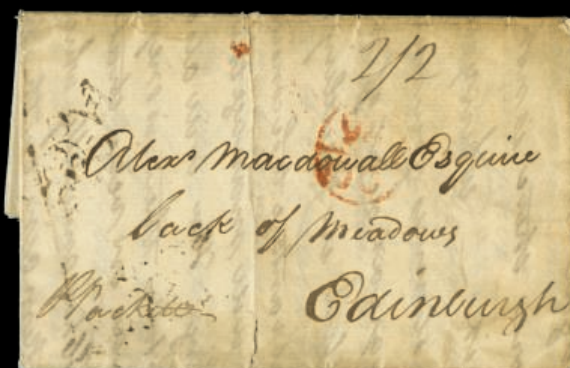 2/2
Alexr Macdowall Esquire
back of Meadows
Edinburgh